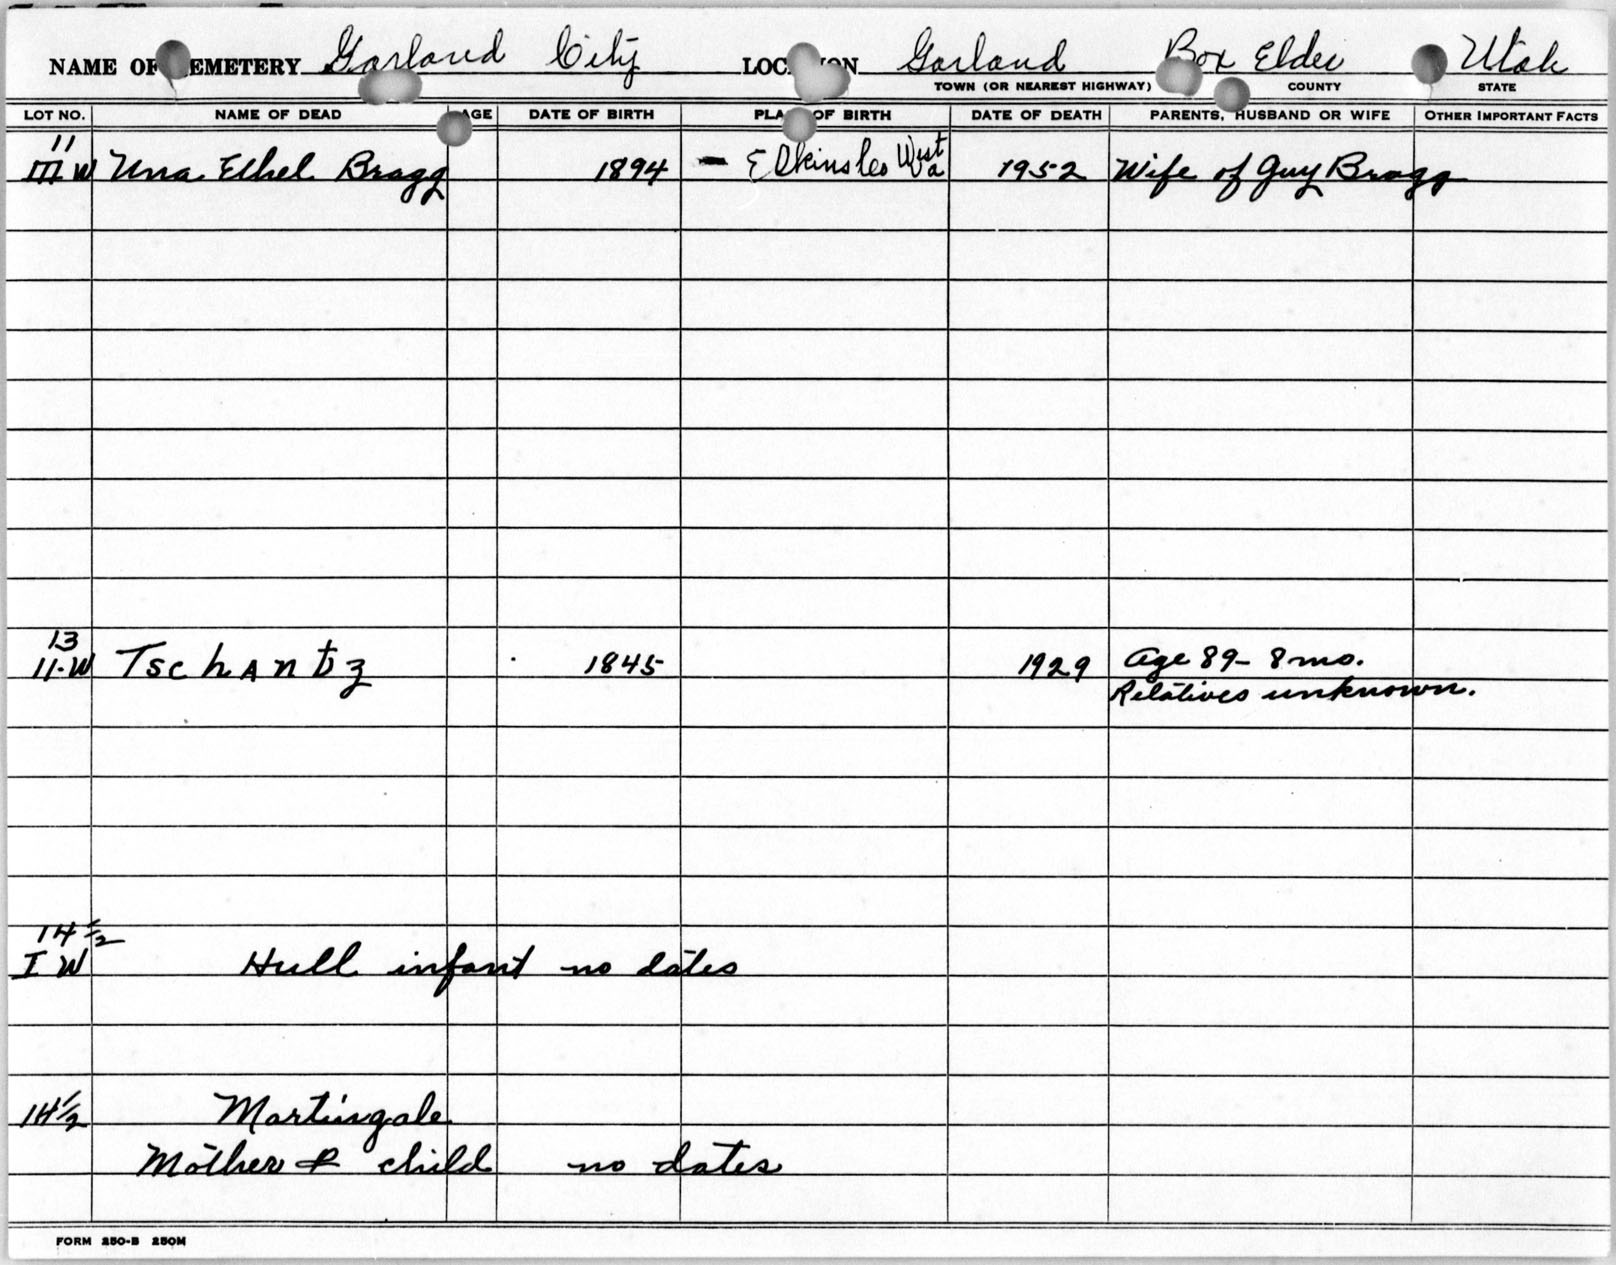 NAME OF CEMETERY Garland City LOCATION Garland Box Elder Utah
TOWN (OR NEAREST HIGHWAY) COUNTY STATE
LOT NO. NAME OF DEAD AGE DATE OF BIRTH PLACE OF BIRTH DATE OF DEATH PARENTS, HUSBAND OR WIFE OTHER IMPORTANT FACTS
11
III W Una Ethel Bragg 1894 - West Va 1952 Wife of Guy Bragg
13
11-W Tschantz 1845 1929 Age 89- 8 mo.
Relatives unknown.
14 1/2
I W Hull infant no dates
14 1/2 Martingale
Mother & child no dates
FORM 250-B 250M